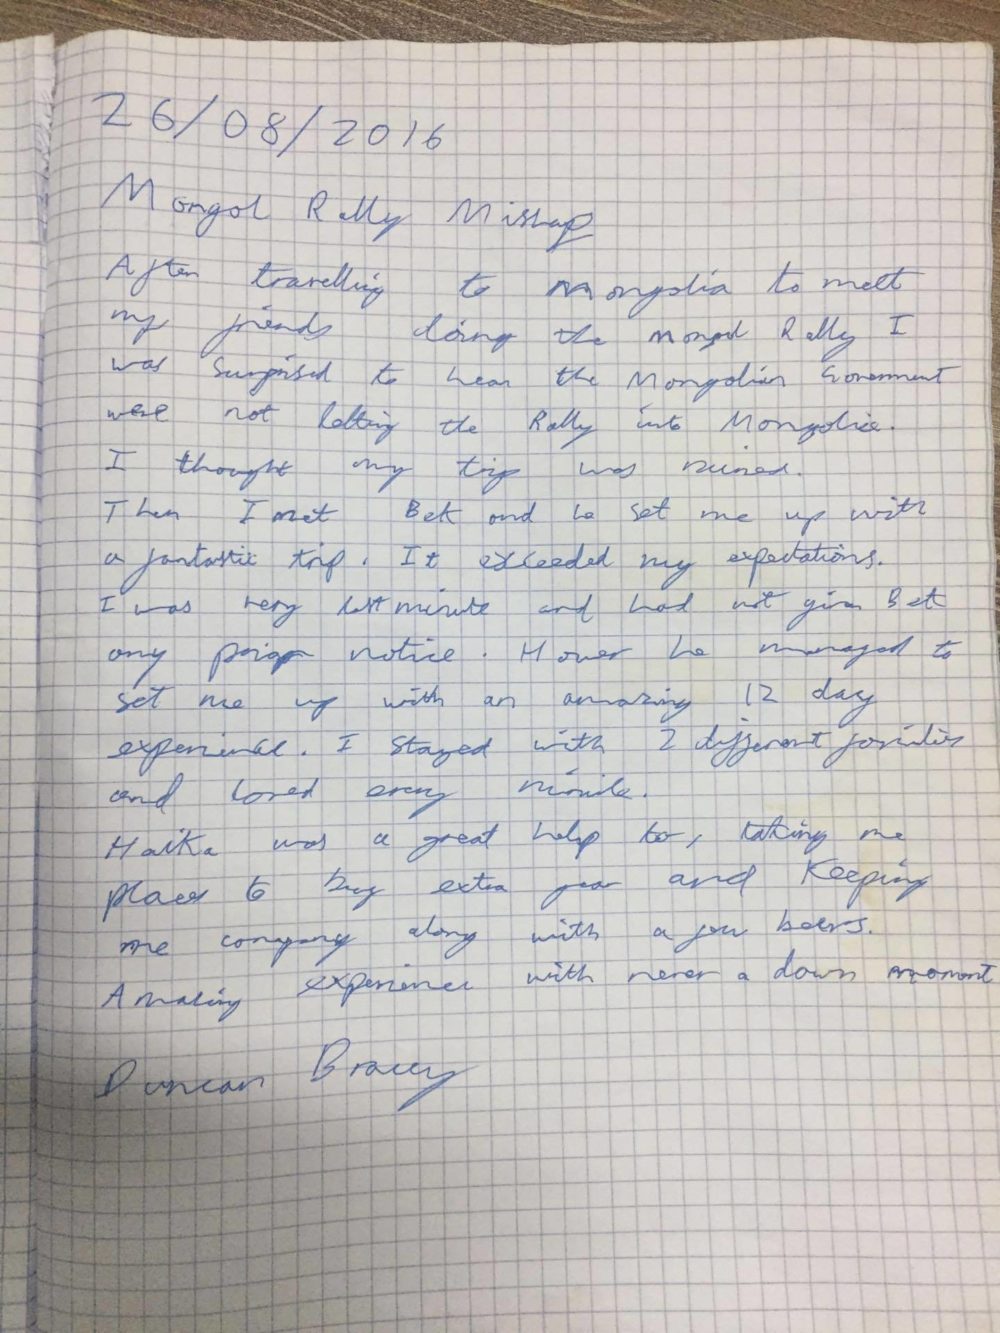 26/08/2016
Mongol Rally Mishap
After travelling to Mongolia to meet
my friends doing the Mongol Rally I
was surprised to hear the Mongolian Government
were not letting the Rally into Mongolia.
I thought my trip was ruined.
Then I met Bek and he set me up with
a fantastic trip. It exceeded my expectations.
I was very last minute and had not given Bek
any prior notice. However he managed to
set me up with an amazing 12 day
experience. I stayed with 2 different families
and loved every minute.
Haika was a great help to, taking me
places to buy extra gear and Keeping
me company along with a few beers.
Amazing experience with never a down moment
Duncan Bracey